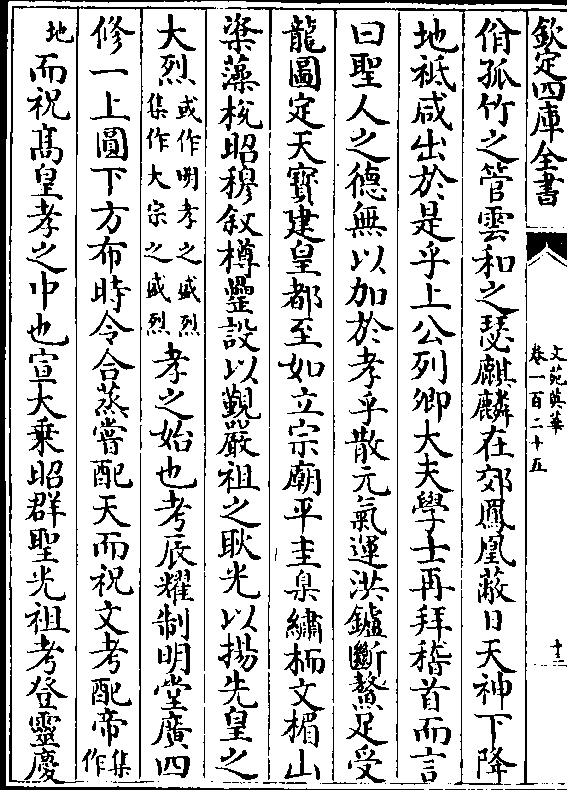 欽定四庫全書
文苑英華
卷一百二十五
十二
佾孤竹之管雲和之瑟麒麟在郊鳳凰蔽日天神下降
地祇咸出於是乎上公列卿大夫學士再拜稽首而言
曰聖人之德無以加於孝乎散元氣運洪鑪斷鼇足受
龍圖定天寳建皇都至如立宗廟平圭臬繡栭文楣山
楶藻梲昭穆叙樽罍設以觀嚴祖之耿光以揚先皇之
大烈或作明孝之盛烈集作大宗之盛烈孝之始也考辰耀制明堂廣四
修一上圓下方布時令合蒸嘗配天而祝文考配帝集作
地而祝髙皇孝之中也宣大乗昭群聖光祖考登靈慶